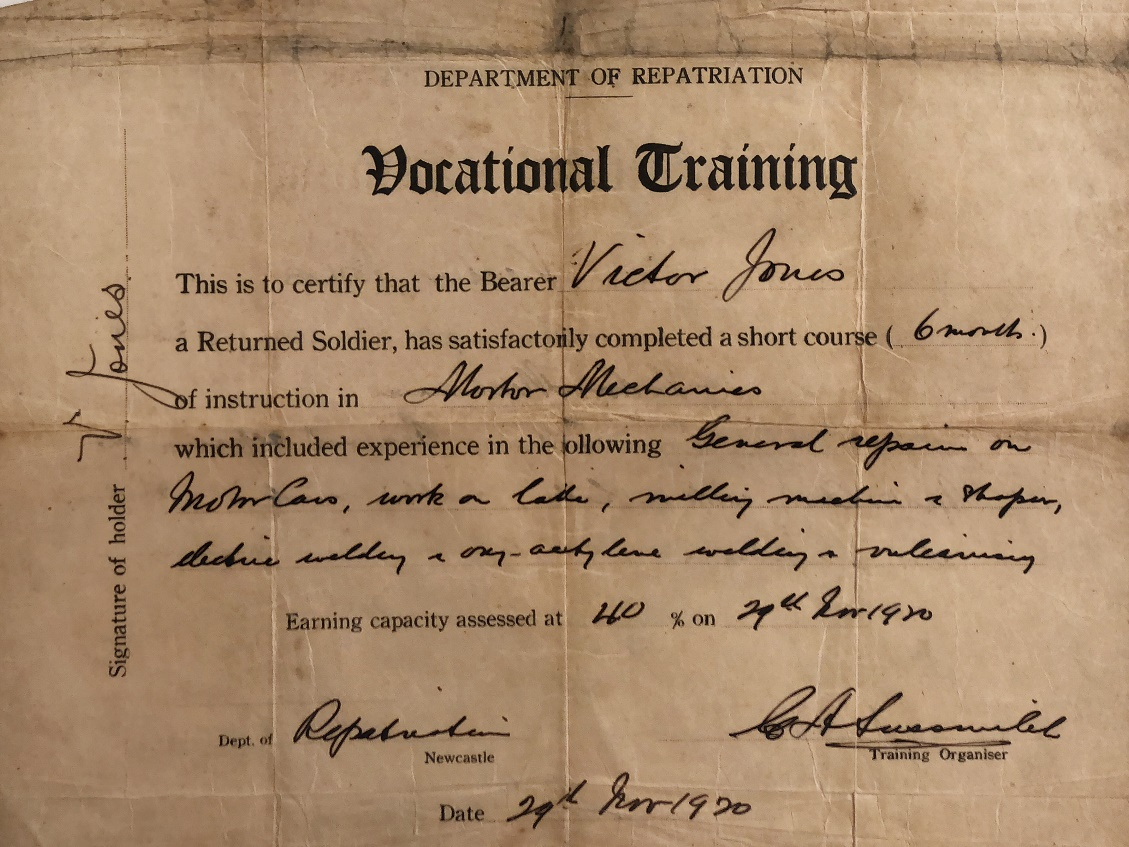 DEPARTMENT OF REPATRIATION
Vocational Training
This is to certify that the Bearer Victor Jones
a Returned Soldier, has satisfactorily completed a short course ( 6 months. )
of instruction in Mortor Mechanics
which included experience in the following General repairs on
Motor Cars, work on lathe, milling machine & shaper,
electric welding & oxy-acetylene welding & vulcanising
Earning capacity assessed at 40 % on 29th Nov 1920
Dept. of Repatriation
Newcastle
C A Sussmilch
Training Organiser
Date 29th Nov 1920
Signature of holder V Jones.